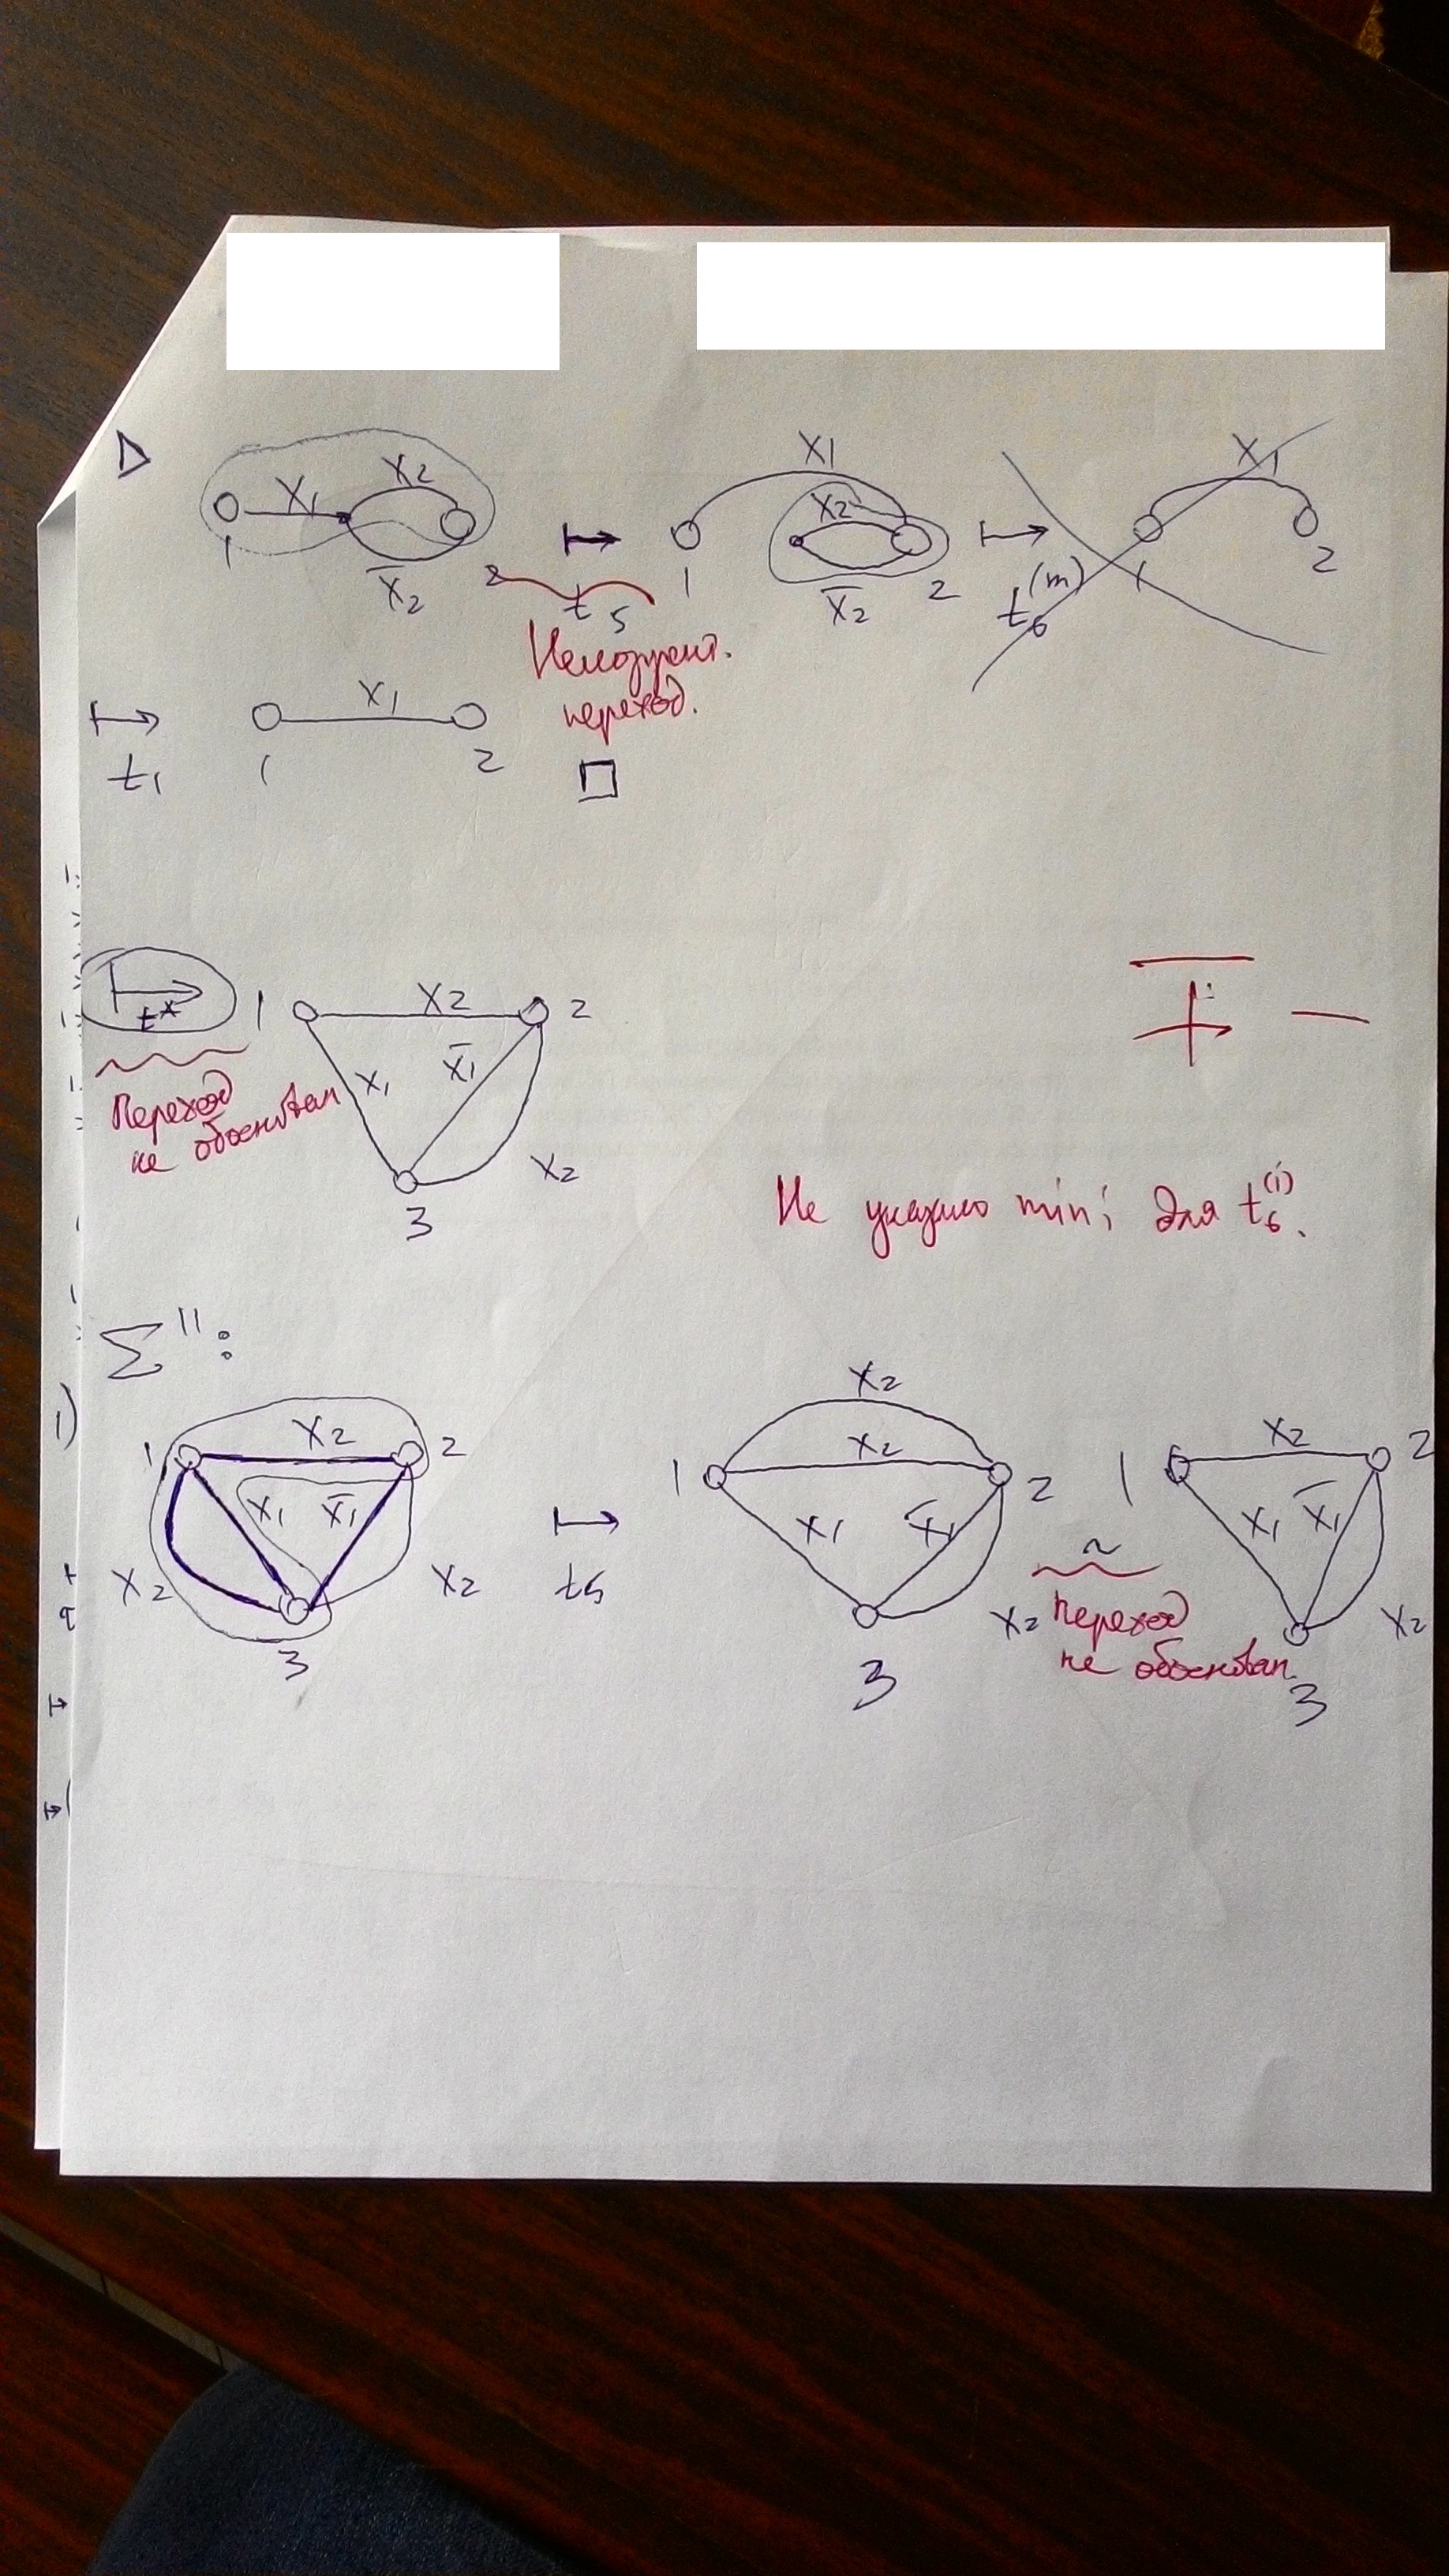 X1 X2 X̄2 1 2
↦ t5
X1 X2 X̄2 1 2
↦ t6^(m)
X1 1 2
Некоррект.
переход.
↦ t1 X1 1 2 □
↦ t* 1 X2 2 X1 X̄1 X2 3
Переход
не обоснован
∓ −
Не указано min i для t6^(i).
Σ'':
1) 1 X2 2 X1 X̄1 X2 X2 3
↦ t5
X2 1 X2 2 X1 X̄1 X2 3
~
1 X2 2 X1 X̄1 X2 3
Переход
не обоснован